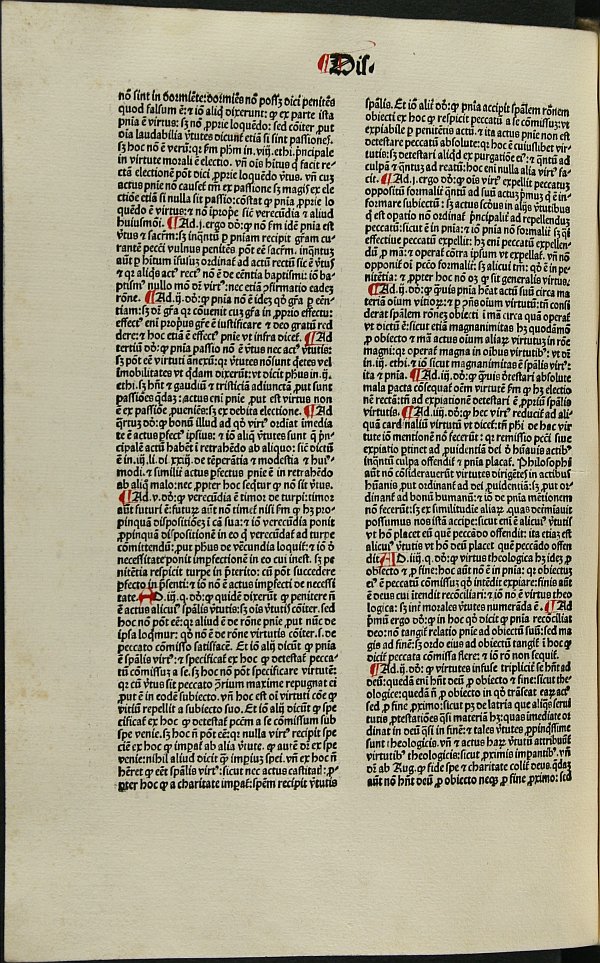 ¶ Dis.
nō sint in dormiēte: dormiēs nō possʒ dici penitēs
quod falsum ē: ⁊ iō aliq̇ dixerunt: ꝙ ex parte ista
pn̄ia ē virtus: sʒ nō ꝓprie loquēdo: sed cōiter, put
oīa laudabilia v̄tutes dicunt̄ etiā si sint passiones.
sʒ hoc nō ē verū: qꝛ fm phm̄ in .viij. ethi. p̄ncipale
in virtute morali ē electio. vn̄ oīs hītus q̇ facit re-
ctā electionē pōt dici ꝓprie loquēdo v̄tus. vn̄ cuʒ
actus pnīe nō causet̄ nisi ex passione sʒ magis ex ele
ctiōe etiā si nulla sit passio: cōstat ꝙ pn̄ia ꝓprie lo
quēdo ē virtus: ⁊ nō īproꝑe sic̄ verecūdia ⁊ aliud
huiusmōi. ¶ Ad .j. ergo dō: ꝙ nō fm idē pn̄ia est
v̄tus ⁊ sacrm̄: sʒ inqn̄tū ꝑ pn̄iam recipit gr̄am cu-
rantē pecc̄i vulnus penitēs pōt eē sacrm̄. inqn̄tuʒ
aūt ꝑ hītum īfusuʒ ordinat̄ ad actū rectū sic ē v̄tus
⁊ qꝛ aliq̇s act⁹ rect⁹ nō ē de cēntia baptismi: iō ba-
ptism⁹ nullo mō dr̄ vir⁹: nec etiā ꝓfirmatio eadeʒ
rōne. ¶ Ad .ij. dō: ꝙ pn̄ia nō ē idēʒ qd̓ gr̄a ꝑ eēn-
tiam: sʒ dr̄ gr̄a qꝛ cōuenit cuʒ gr̄a in ꝓprio effectu:
effect⁹ enī propus gr̄e ē iustificare ⁊ deo gratū red
dere: ⁊ hoc etiā ē effect⁹ pnīe vt infra dicet̄. ¶ Ad
tertiū dō: ꝙ pn̄ia passio nō ē v̄tus nec act⁹ v̄tutis:
sʒ pōt eē v̄tuti ānexū: qꝛ v̄tutes nō sunt q̇etes vel
īmobilitates vt q̇dam dixerūt: vt dicit phus in .ij.
ethi. sʒ hn̄t ⁊ gaudiū ⁊ tristiciā adiunctā ,put sunt
passiōes q̇daʒ: actus eni pnīe ,put est virtus non
ē ex passiōe ꝓueniēs: sʒ ex debita electione. ¶ Ad
q̄rtuʒ dō: ꝙ bonū illud ad qd̓ vir⁹ ordīat īmedia
te ē actus ꝑfect⁹ ipsius: ⁊ iō aliq̇ v̄tutes sunt q̄ p̄n-
cipalē actū habēt ī retrahēdo ab aliquo: sic̄ dictū
ē in .iij. li. di .xxij. de tēperātia ⁊ modestia ⁊ hui⁹
modi. ⁊ similii actus ꝑfectus pnīe ē in retrahēdo
ab aliq̇ malo: nec ꝓpter hoc seq̇tur ꝙ nō sit v̄tus.
¶ Ad .v. dō: ꝙ verecūdia ē timor de turpi: timor
aūt futuri ē: futuꝝ aūt nō timet̄ nisi fm ꝙ hʒ pro-
pinquā dispositiōeʒ ī cā sua: ⁊ iō verecūdia ponit
,ppinquā dispositionē in eo q̇ verecūdat̄ ad turpe
cōmittendū: ,put phus de v̄ecūndia loquit̄: ⁊ iō ō
necessitate ponit īmpfectionē in eo cui inest. sʒ pe-
nitētia respicit turpe in p̄terito: cū pōt succedere
ꝑfecto in p̄senti: ⁊ iō nō ē actus imꝑfecti de necessi
tate. AD .iij. q. dō: ꝙ quidē dixerūt ꝙ penitere ē
ē actus alicui⁹ spālis v̄tutis: sʒ oīs v̄tutis cōiter. sed
hoc nō pōt eē: qꝛ aliud ē de rōne pnīe ,put nūc de
ipsa loqmur: qd̓ nō ē de rōne virtutis cōiter. s. de
peccato cōmisso satisfacē. Et iō alij dicūt ꝙ pn̄ia
ē spālis vir⁹: ⁊ specificat̄ ex hoc ꝙ detestat̄ pecca-
tū cōmissuʒ a se. sʒ hoc nō pōt specificare virtutē:
qꝛ cū v̄tus sit peccato ꝯrium maxime repugnat ei
,put ē in eodē subiecto. vn̄ hoc est oī virtuti cōe ꝙ
vitiū repellit a subiecto suo. Et iō alij dicūt ꝙ spe
cificat̄ ex hoc ꝙ detestat̄ pcc̄m a se cōmissum sub
spe venie. sʒ hoc n̄ pōt eē: qꝛ nulla vir⁹ recipit spe
ciē ex hoc ꝙ impat̄ ab alia v̄tute. ꝙ autē dr̄ ex spe
venie: nihil aliud dicit ꝙ impiuʒ spei. vn̄ ex hoc n̄
hēret ꝙ eēt spālis vir⁹: sicut nec actus castitatī: ꝓ-
pter hoc ꝙ a charitate impat̄: spēm recipit v̄tutis
spālis. Et iō alit̄ dō: ꝙ pn̄ia accipit spālem rōnem
obiecti ex hoc ꝙ respicit peccatū a se cōmissuʒ: vt
expiabile ꝑ penitētis actū: ⁊ ita actus pnīe non est
detestare peccatū absolute: qꝛ hoc ē cuiuslibet vir-
tutis: sʒ detestari aliq̇d ex purgatiōe ei⁹: ⁊ qn̄tū ad
culpā ⁊ qn̄tuʒ ad reatū: hoc eni nulla alia vir⁹ fa-
cit. ¶ Ad .j. ergo dō: ꝙ oīs vir⁹ expellit peccatuʒ
oppositū formalit̄ qn̄tū ad suū actuʒ p̄muʒ q̇ ē in-
formare subiectū: sʒ actus scd̓us in aliq̇s v̄tutibus
q̇ est opatio nō ordinat̄ p̄ncipalit̄ ad repellenduʒ
peccatū: sicut ē in pn̄ia: ⁊ iō pn̄ia nō formalit̄ sʒ q̄si
effectiue peccatū expellit: hʒ eni peccatū expellen-
dū ꝓ mā: ⁊ operat̄ cōtra ipsum vt expellat̄. vn̄ nō
opponit̄ oī pcc̄o formalit̄: sʒ alicui tm̄: qd̓ ē in pe-
nitētia: ⁊ ꝓpter hoc nō oʒ ꝙ sit generalis virtus.
¶ Ad .ij. dō: ꝙ q̄uis pn̄ia hēat actū suū circa ma
teriā oium vitioꝝ: ⁊ ꝑ ꝯn̄s oium virtutū: tn̄ consi
derat spālem rōneʒ obiecti ī mā circa quā operat̄
vt dictū ē: sicut etiā magnanimitas hʒ quodāmō
ꝓ obiecto ⁊ mā actus oiūm aliaꝝ virtutuʒ in rōne
magni: qꝛ operat̄ magna in oībus virtutibꝰ: vt dr̄
in .iij. ethi. ⁊ iō sicut magnanimitas ē spālis vir⁹:
ita ⁊ pn̄ia. ¶ Ad .iij. dō: ꝙ q̄uis detestari absolute
mala pacta cōsequat̄ oēm virtutē fm ꝙ hʒ electio
nē rectā: tn̄ ad expiationē detestari ē ꝓpriū spālis
virtutis. ¶ Ad .iiij. dō: ꝙ hec vir⁹ reducit̄ ad ali-
quā cardinaliū virtutū vt dicet̄: tn̄ phi de hac vir
tute iō mentionē nō fecerūt: qꝛ remissio pecc̄i siue
expiatio ptinet ad ,puidentiā dei ō hūauis actib⁹
inqn̄tū culpa offendit̄ ⁊ pn̄ia placat̄. Philosophi
aūt nō cōsiderauerūt virtutes dirigētes in actibus
hūanis ,put ordinant̄ ad dei ,puidentiā: sʒ ,put or-
dinant̄ ad bonū humanū: ⁊ iō de pn̄ia metionem
nō fecerūt: sʒ ex similitudie aliaꝝ quas determiauit
possumus nos istā accipe: sicut eni ē alicui⁹ v̄tutis
vt hō placet eū quē peccādo offendit: ita etiaʒ est
alicui⁹ v̄tutis vt hō deū placet quē peccādo offen
dit. AD .iiij. q. dō: ꝙ virtus theologica hʒ idēʒ ꝓ
obiecto ⁊ ꝓ fine: hoc aūt nō ē in pn̄ia: qꝛ obiectuʒ
ei⁹ ē peccatū cōmissuʒ qd̓ intēdit expiare: finis aūt
ē deus cui itendit recōciliari: ⁊ iō nō ē virtus theo
logica: sʒ inf̄ morales v̄tutes numerāda ē. ¶ Ad
p̄mū ergo dō: ꝙ in hoc qd̓ dicit̄ ꝙ pn̄ia recōciliat
deo: nō tangit̄ relatio pnie ad obiectū suū: sed ma
gis ad finē: sʒ ordo eius ad obiectū tangit̄ ī hoc ꝙ
dicit̄ peccata cōmissa flere: ⁊ iō rō non sequit̄.
¶ Ad .ij. dō: ꝙ virtutes infuse tripliciter se hn̄t ad
deū: quedā eni hn̄t deū ꝓ obiecto ⁊ fine: sicut the-
ologice: quedā n̄ ꝓ obiecto in qd̓ trāseat eaꝝ act⁹
sed ꝓ fine ꝓximo: sicut pʒ de latria que aliq̇s serui
tutis ,ptestatiōes q̄si materiā hʒ: quas imediate or
dinat in deū q̄si in finē: ⁊ tales v̄tutes ,ppinq̇ssime
sunt theologicis. vn̄ ⁊ actus haꝝ v̄tutū attribuūt̄
virtutibꝰ theologicis: sicut ꝓximis impantibꝰ. vn̄
dr̄ ab Aug. ꝙ fide spe ⁊ charitate colit̄ deus. q̇dāʒ
aūt nō hn̄t deū ꝓ obiecto neqʒ ꝓ fine ꝓximo: sed